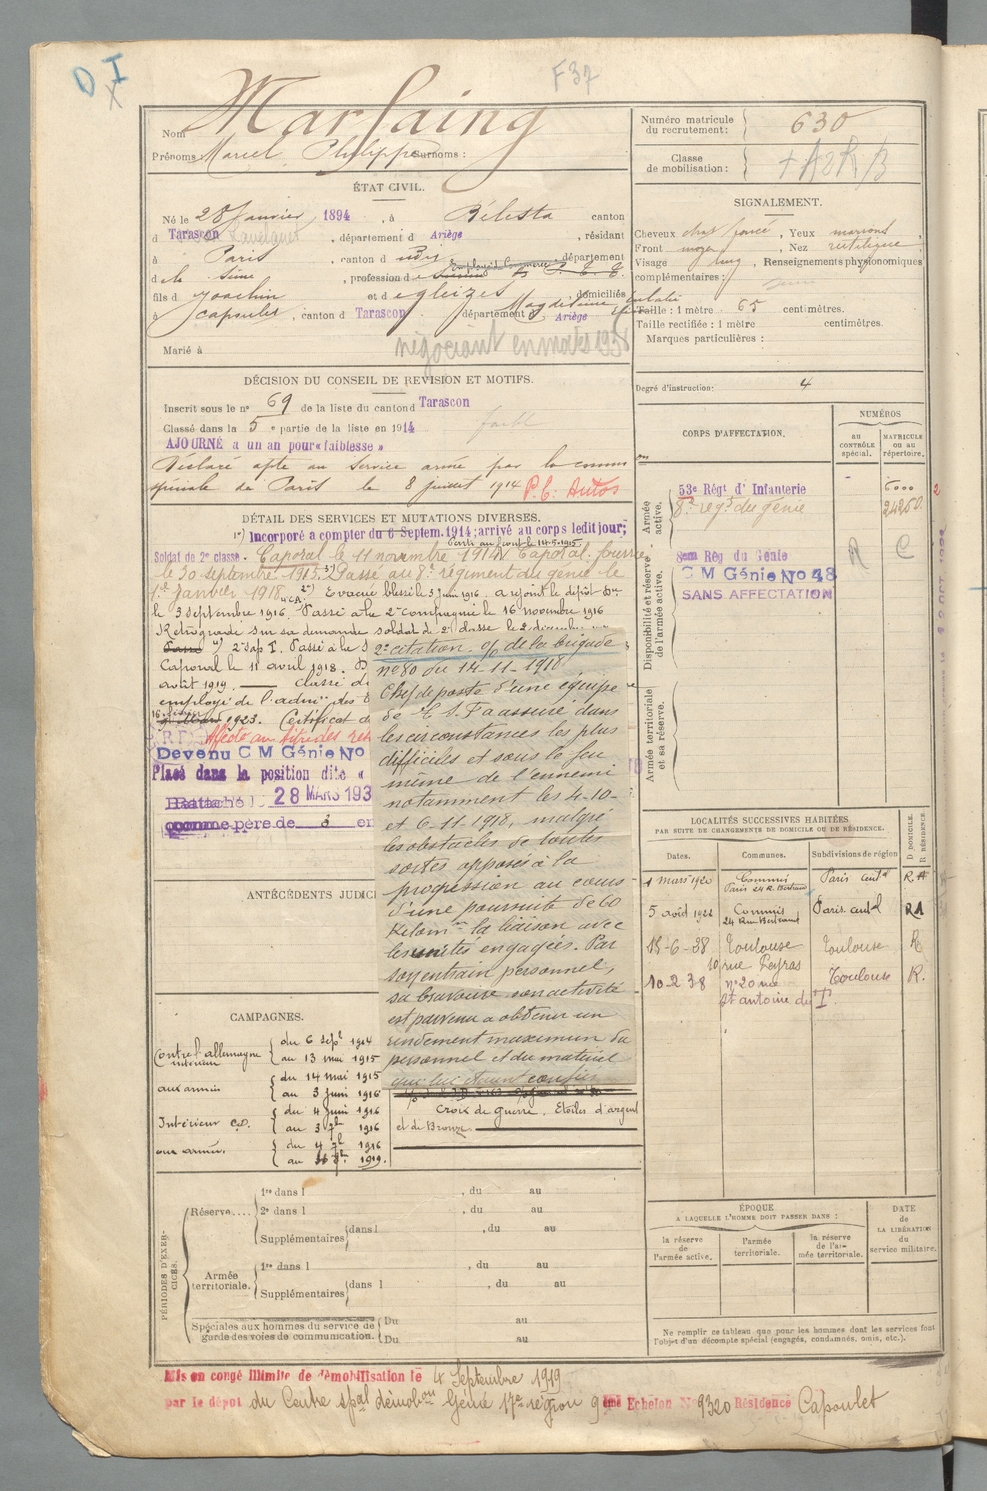 D I
F37
Nom Marfaing
Prénoms : Marcel, Philippe Surnoms :
ÉTAT CIVIL.
Né le 28 Janvier 1894, à Bélesta canton
d Tarascon, département d Ariège, résidant
à Paris, canton d udis, département
de la Seine, profession d Employé Commerce
fils d Joachin et d egleizes Magdeleine domiciliés
à Capoulet, canton d Tarascon, département d Ariège
Marié à
négociant en mars 1938
DÉCISION DU CONSEIL DE REVISION ET MOTIFS.
Inscrit sous le n° 69 de la liste du canton d Tarascon
Classé dans la 5 e partie de la liste en 1914
AJOURNÉ à un an pour « faiblesse »
faible
Déclaré apte au service armé par la comm
spéciale de Paris le 8 juillet 1914 P.C. Autos
DÉTAIL DES SERVICES ET MUTATIONS DIVERSES.
1°) Incorporé a compter du 6 Septem. 1914; arrivé au corps ledit jour;
Parti au front le 14-5-1915
Soldat de 2e classe. Caporal le 11 novembre 1914. Caporal fourrier
le 30 septembre 1915. 3°) Passé au 8e régiment du génie le
1er Janvier 1918. 2°) Evacué blessé le 3 Juin 1916. a rejoint le dépôt
le 3 septembre 1916. Passé à la 2e compagnie le 16 novembre 1916
Rétrogradé sur sa demande soldat de 2e classe le 2 décembre
Passé 4°) 2e Sap T. Passé à la
Caporal le 11 avril 1918.
août 1919. Classé d
employé de l'admon des
1923. Certificat d
Affecté au titre des
Devenu C M Génie No
Placé dans la position dite «
Rattaché 28 MARS 193
comme père de 3 en
2e citation. o/o de la brigade
n° 80 du 14-11-1918
Chef de poste d'une équipe
de T.S.F a assuré dans
les circonstances les plus
difficiles et sous le feu
même de l'ennemi
notamment les 4-10-
et 6-11-1918, malgré
les obstacles de toutes
sortes apposés à la
progression au cours
d'une poursuite de 60
Kilom. la liaison avec
les unités engagées. Par
son entrain personnel,
sa bravoure son activité
est parvenu a obtenir un
rendement maximum du
personnel et du matériel
qui lui étaient confiés
ANTÉCÉDENTS JUDICI
CAMPAGNES.
Contre l'allemagne
Intérieur
du 6 sept 1914
au 13 mai 1915
aux armées
du 14 mai 1915
au 3 Juin 1916
Intérieur C.D.
du 4 Juin 1916
au 3 7b 1916
aux armées.
du 4 7b 1916
au 7b 1919.
Croix de Guerre. Etoiles d'argent
et de Bronze
PÉRIODES D'EXERCICES.
Réserve....
1re dans l , du au
2e dans l , du au
Supplémentaires dans l , du au
Armée territoriale.
1re dans l , du au
Supplémentaires dans l , du au
Spéciales aux hommes du service de
garde des voies de communication.
Du au
Du au
Mis en congé illimité de démobilisation le 4 Septembre 1919
par le dépot du Centre spal démobon Génie 17e région 9 ème Echelon N° 9320 Résidence Capoulet
Numéro matricule
du recrutement : 630
Classe
de mobilisation :
SIGNALEMENT.
Cheveux chat foncé, Yeux marrons
Front moyen, Nez rectiligne
Visage long, Renseignements physionomiques
complémentaires :
Taille : 1 mètre 65 centimètres.
Taille rectifiée : 1 mètre centimètres.
Marques particulières :
Degré d'instruction : 4
CORPS D'AFFECTATION.
NUMÉROS
AU CONTRÔLE spécial.
MATRICULE OU AU répertoire.
Armée active.
53e Régt d' Infanterie
8e regt du génie
Disponibilité et réserve de l'armée active.
8em Reg du Genie
C M Génie No 48
SANS AFFECTATION
R C
Armée territoriale et sa réserve.
LOCALITÉS SUCCESSIVES HABITÉES
PAR SUITE DE CHANGEMENTS DE DOMICILE OU DE RÉSIDENCE.
Dates. Communes. Subdivisions de région
D DOMICILE.
R RÉSIDENCE.
1 mars 1920 Commis Paris cental R
Paris 24 R. Bertrand
5 août 1922 Commis Paris. cental R
24 Rue Bertrand
15-6-38 Toulouse Toulouse R
10 rue Peyras
10-2 38 n° 20 rue Toulouse R.
St antoine du T.
ÉPOQUE
A LAQUELLE L'HOMME DOIT PASSER DANS :
la réserve de l'armée active.
l'armée territoriale.
la réserve de l'armée territoriale.
DATE
de
LA LIBÉRATION
du
service militaire.
Ne remplir ce tableau que pour les hommes dont les services font
l'objet d'un décompte spécial (engagés, condamnés, omis, etc.).